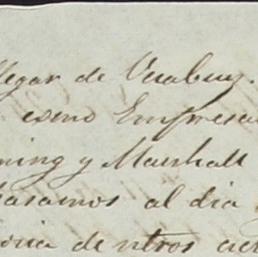 llegar de Veracruz.
como Empresa
ming y Marshall
pasamos al dia
oria de ntros